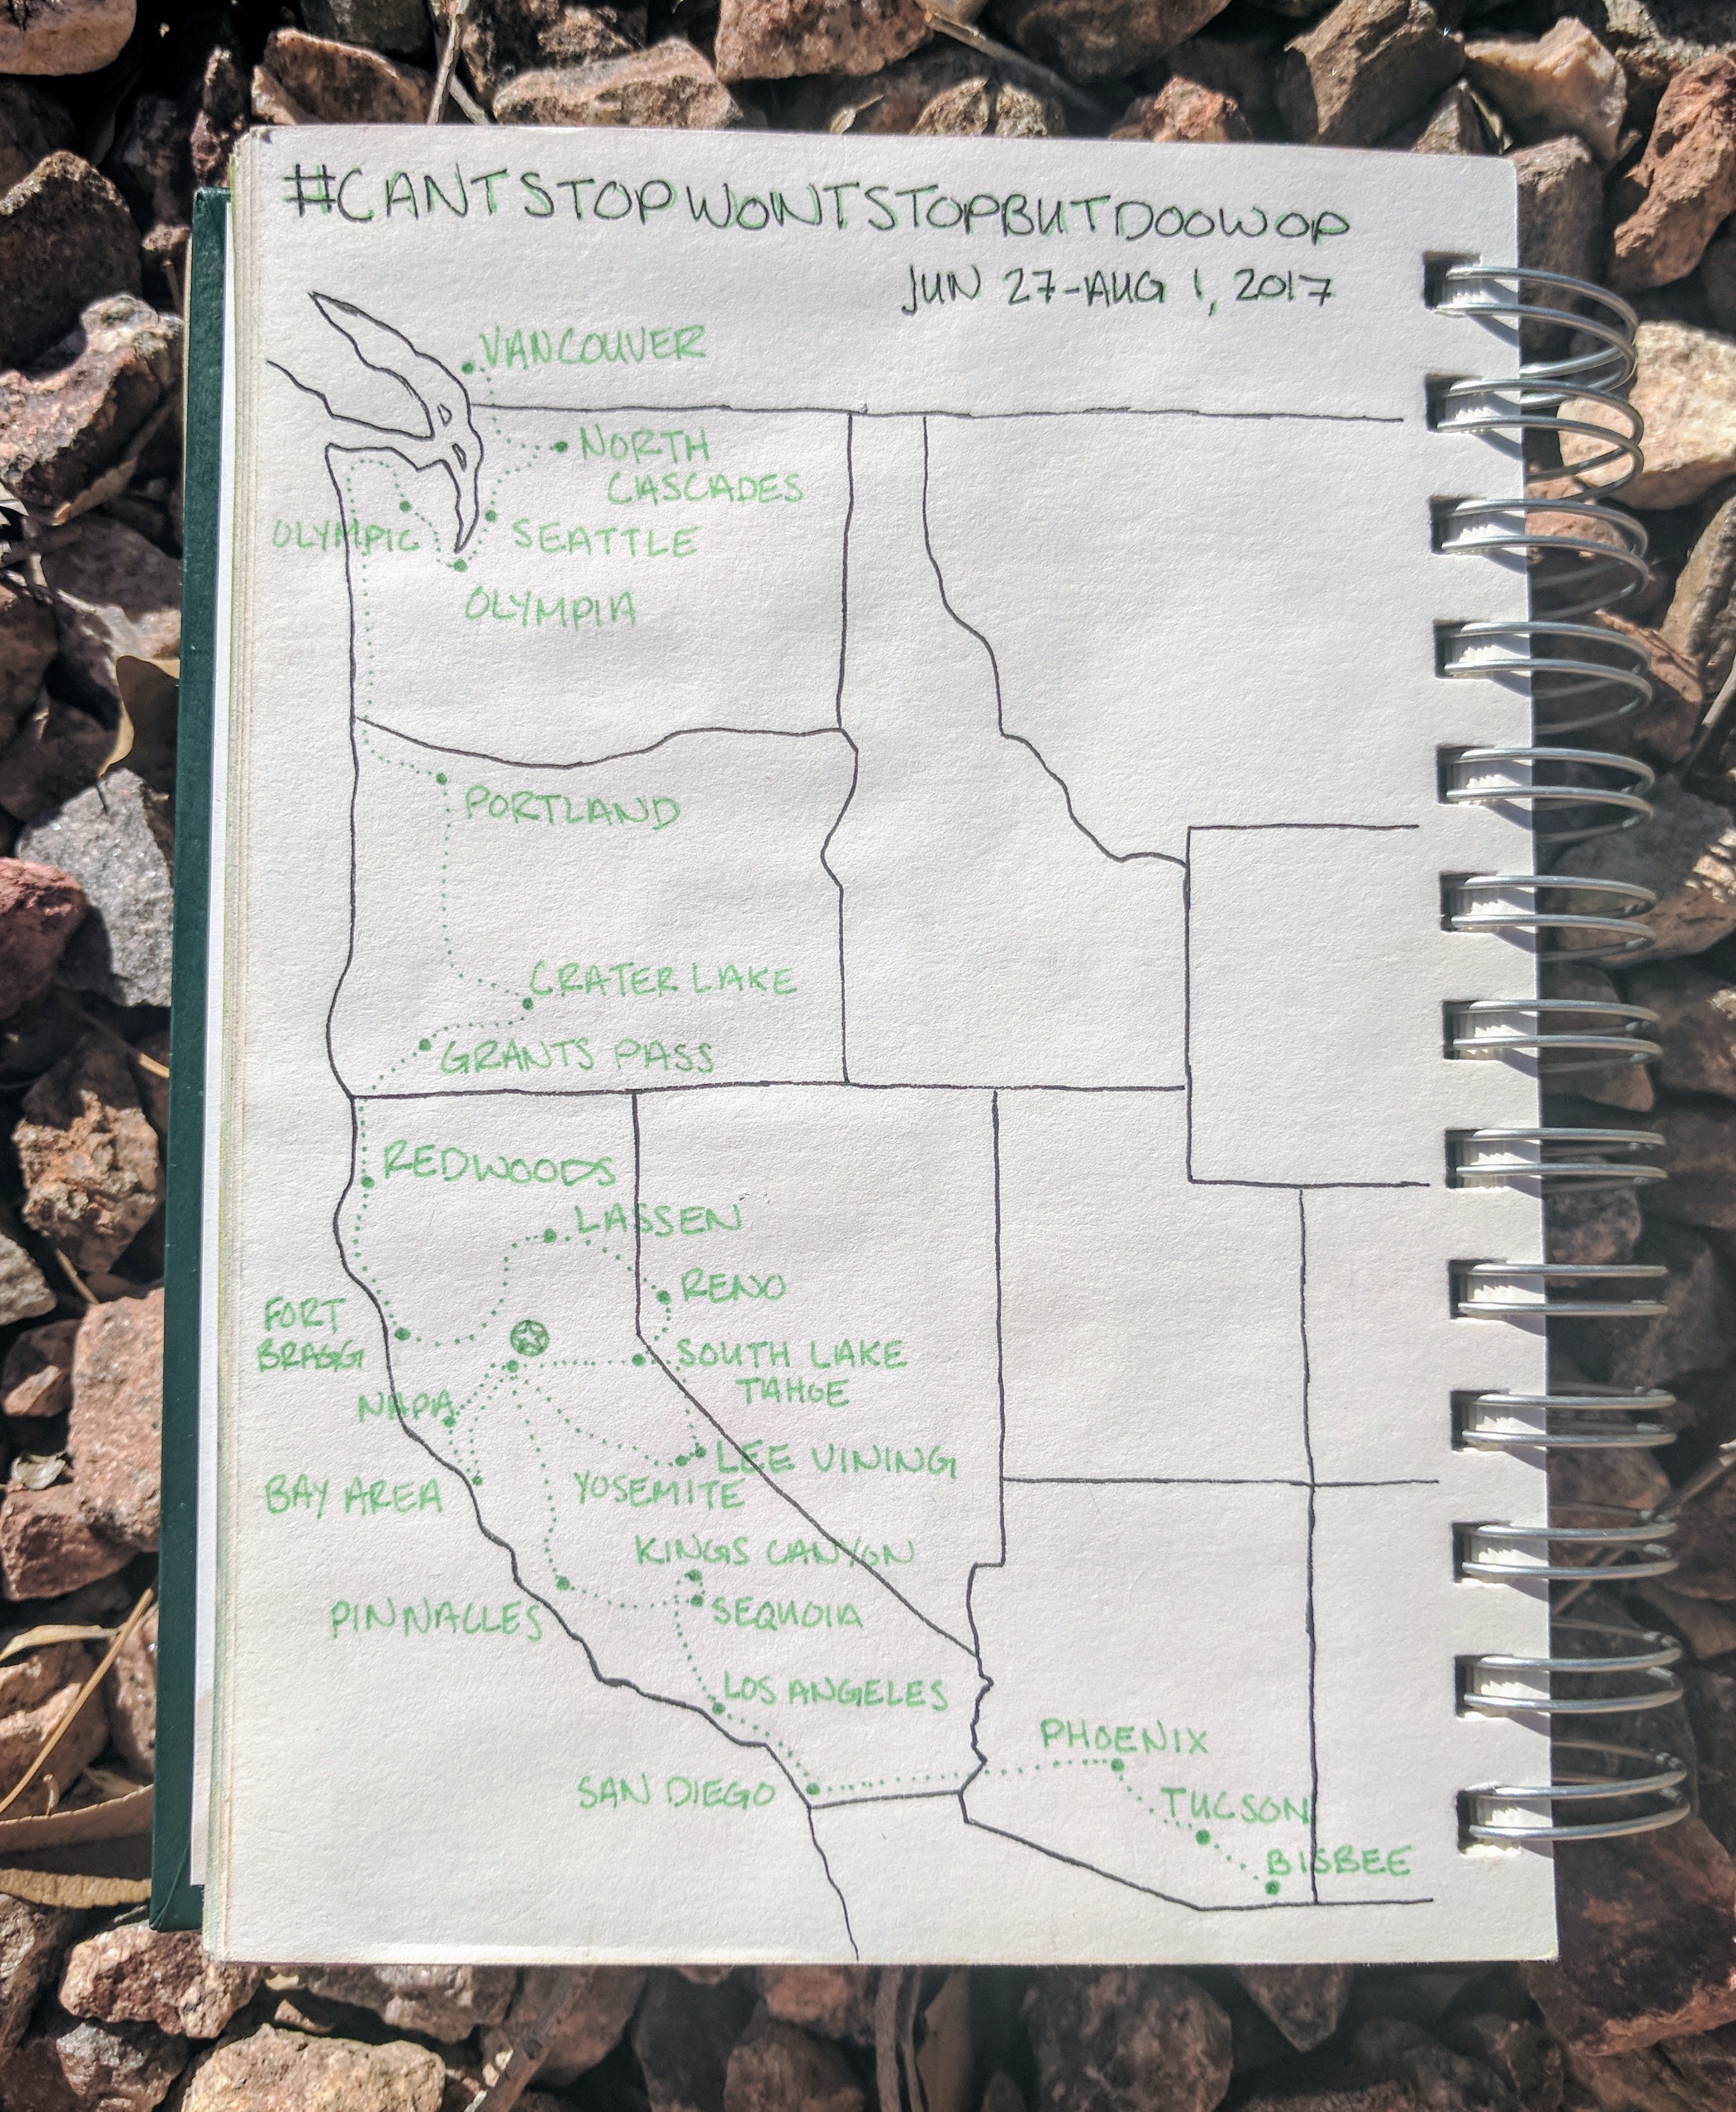 #CANTSTOPWONTSTOPBUTDOOWOP
JUN 27-AUG 1, 2017
VANCOUVER
NORTH
CASCADES
OLYMPIC
SEATTLE
OLYMPIA
PORTLAND
CRATER LAKE
GRANTS PASS
REDWOODS
LASSEN
RENO
FORT
BRAGG
SOUTH LAKE
TAHOE
NAPA
LEE VINING
BAY AREA
YOSEMITE
KINGS CANYON
SEQUOIA
PINNACLES
LOS ANGELES
PHOENIX
SAN DIEGO
TUCSON
BISBEE